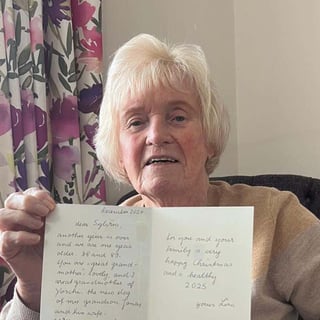 December 2024
dear Sylvia,
another year is over
and we are one year
older. 88 and 89.
You are great grand-
mother. lovely and I
great grandmother of
the new dog
of my grandson
and his wife.
for you and your
family a very
happy Christmas
and a healthy
2025
yours